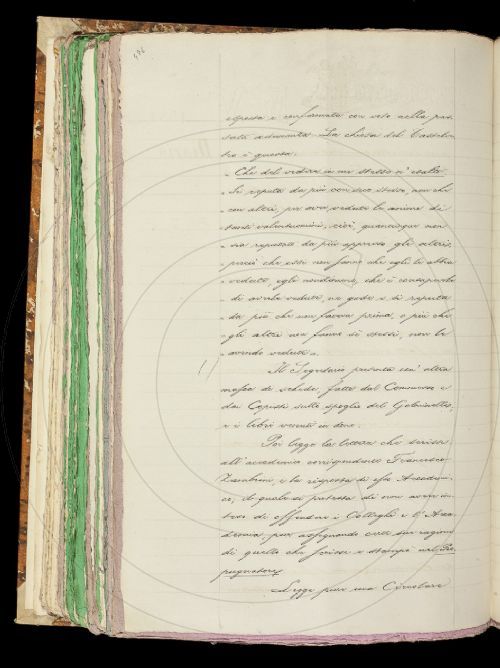 486
esposta e confermata con voto nella pas-
sata adunanza. La chiosa del Castelve-
tro è questa:
" Che del vedere in me stesso n' esalto
" Si reputa da più con seco stesso, non che
" con altri, per aver veduto le anime di
" tanti valentuomini, cioè, quantunque non
" sia reputato da più appresso gli altri,
" perciò che essi non sanno che egli le abbia
" vedute, egli nondimeno, che è consapevole
" di averle vedute, ne gode e si reputa
" da più che non faceva prima, e più che
" gli altri non fanno se stessi, non le
" avendo vedute ".
Il Segretario presenta un' altra
massa di schede, fatte dal Commesso e
dai Deputati sullo spoglio del
e i libri venuti in dono.
Poi legge la lettera che scrisse
all' accademico corrispondente Francesco
Zambrini, e la risposta di esso Accademi-
co, il quale si protesta di non avere in-
teso di offendere i Colleghi e l' Acca-
demia pur assegnando certe sue ragioni
di quello che scrisse e stampò nel Pro-
pugnatore.
Legge pure una Circolare